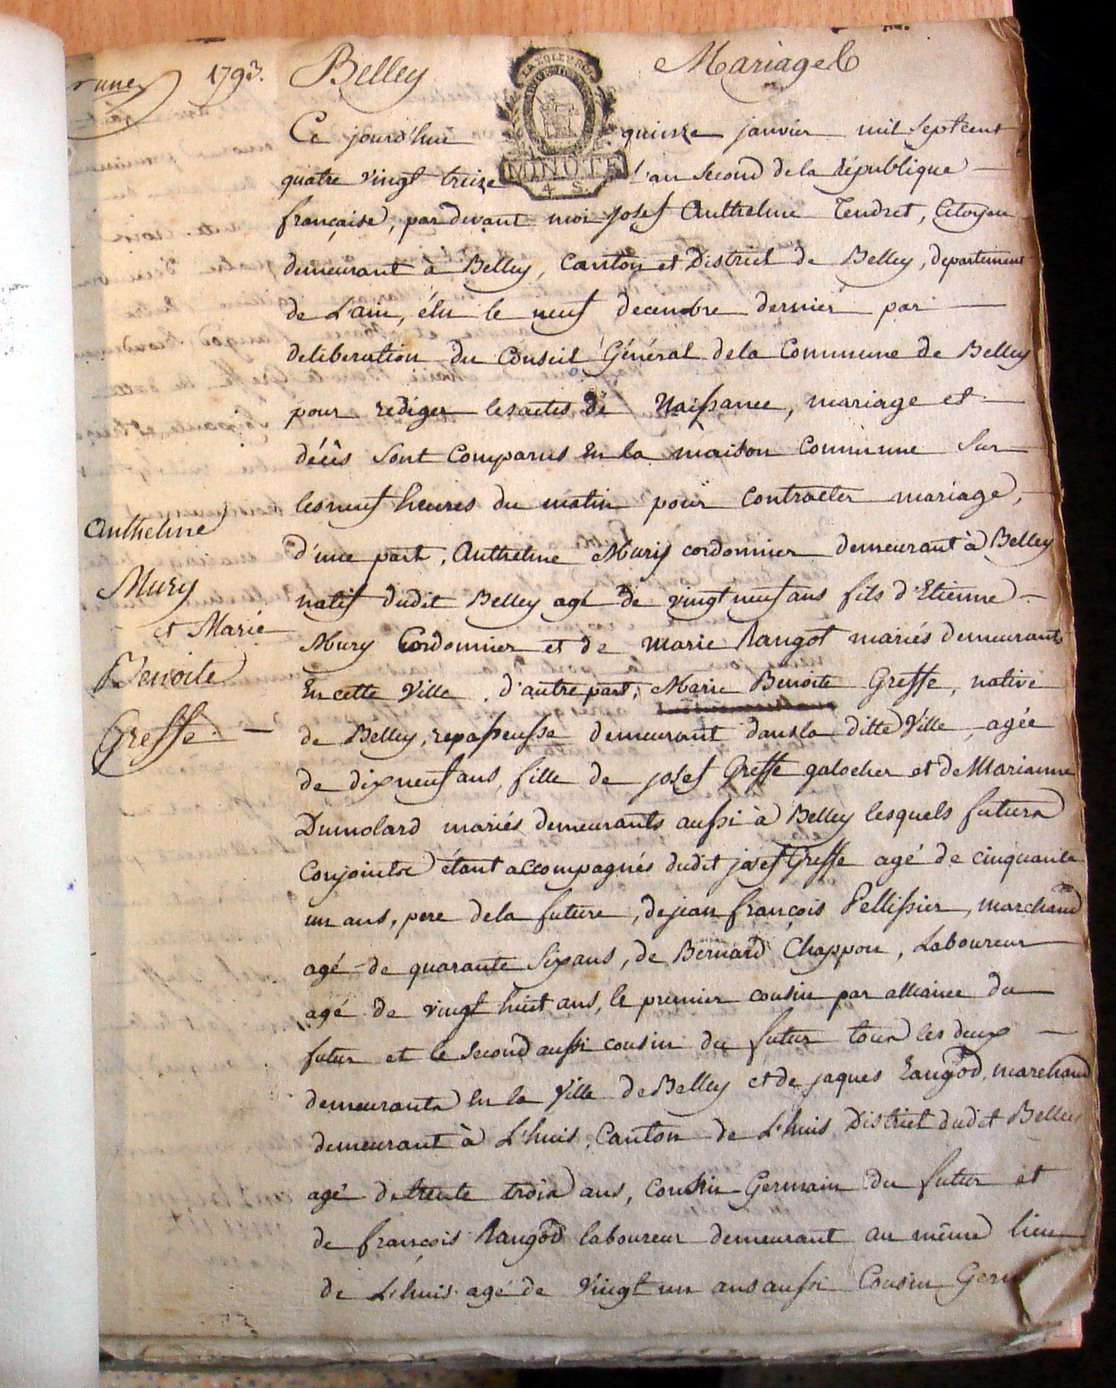 1793. Belley Mariages
LA LOI ET LE ROI
MINUTE
4. S.
Ce jourd'hui quinze janvier mil sept cent
quatre vingt treize l'an second de la république
française, par devant moi Josef Anthelme Tendret, Citoyen
demeurant à Belley, canton et District de Belley, departement
de L'ain, élu le neuf decembre dernier par
deliberation du Conseil Général de la Commune de Belley
pour rediger les actes de Naissance, mariage et
décès sont comparus en la maison commune sur
les neuf heures du matin pour contracter mariage,
d'une part, Anthelme Mury cordonnier demeurant à Belley
natif dudit Belley agé de vingt neuf ans fils d'Etienne
Mury Cordonnier et de marie Rangot mariés demeurants
En cette Ville, d'autre part, Marie Benoite Greffe, native
de Belley, repasseusse demeurant dans la ditte Ville, agée
de dix neuf ans, fille de josef Greffe galocher et de Marianne
Dumolard mariés demeurants aussi à Belley lesquels futurs
Conjoints étant accompagnés dudit josef Greffe agé de cinquante
un ans, pere de la future, de jean françois Pellissier, marchand
agé de quarante six ans, de Bernard Chappou, Laboureur
agé de vingt huit ans, le premier cousin par alliance du
futur et le second aussi cousin du futur tous les deux
demeurants en la Ville de Belley et de jaques Rangod, marchand
demeurant à L'huis, Canton de L'huis District dudit Belley
agé de trente trois ans, cousin Germain du futur et
de françois Rangod laboureur demeurant au même lieu
de L'huis agé de vingt un ans aussi Cousin Germ
Anthelme
Mury
et Marie
Benoite
Greffe